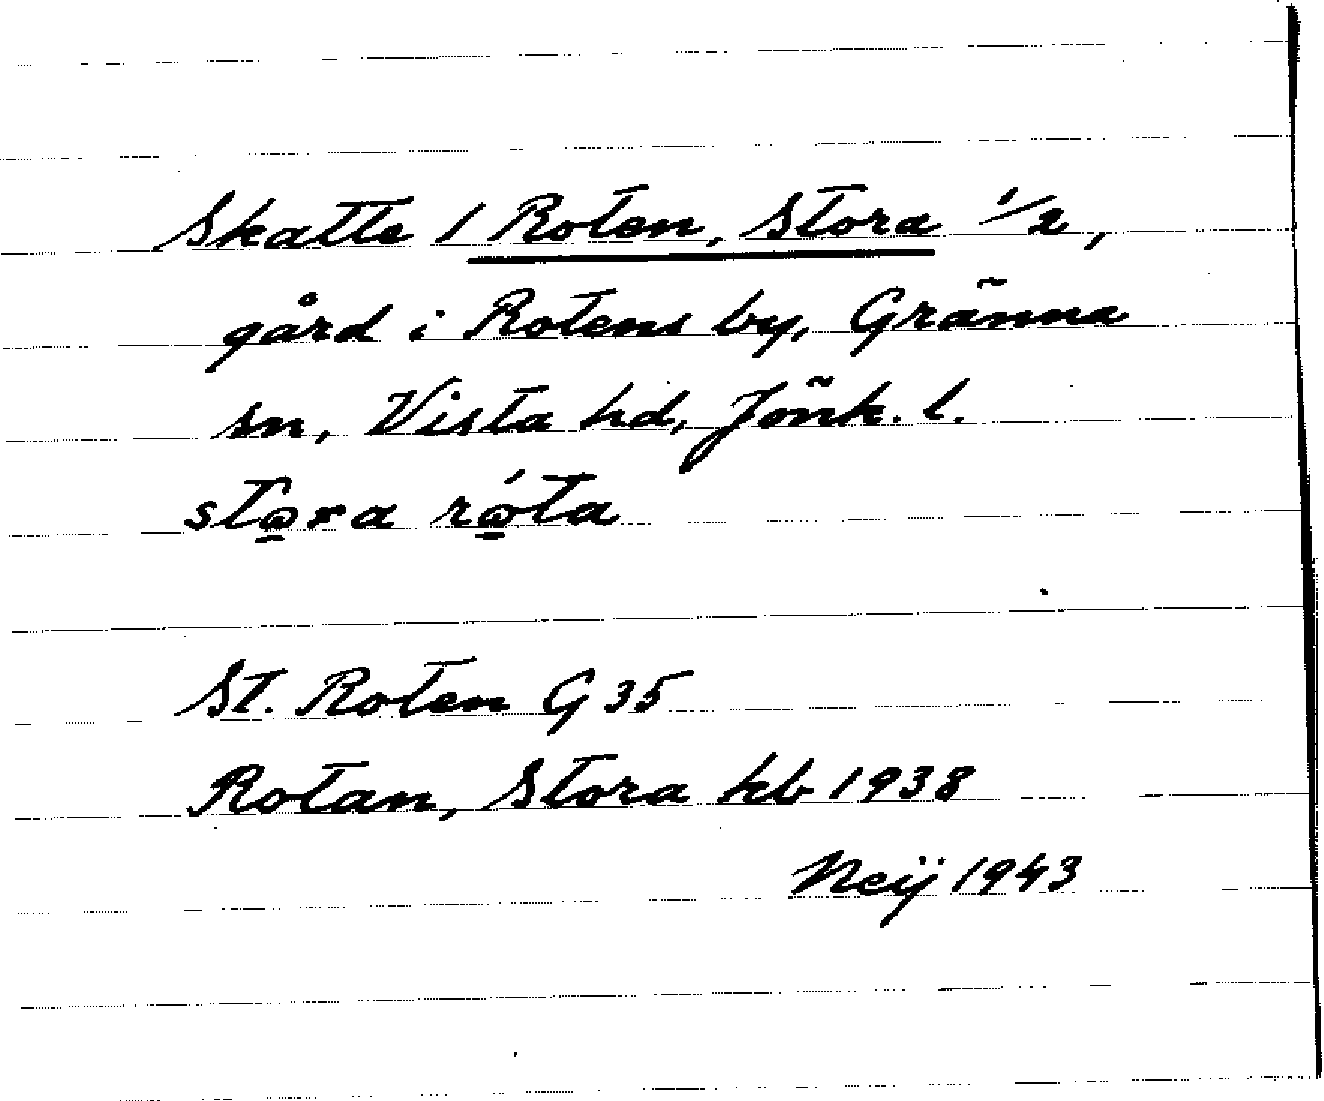 Skatte 1 Roten, Stora 1/2,
gård i Rotens by, Gränna
sn, Vista hd, Jönk. l.
stω̱ra rώ̱ta
St. Roten G 35
Rotan, Stora kb 1938
Neij 1943